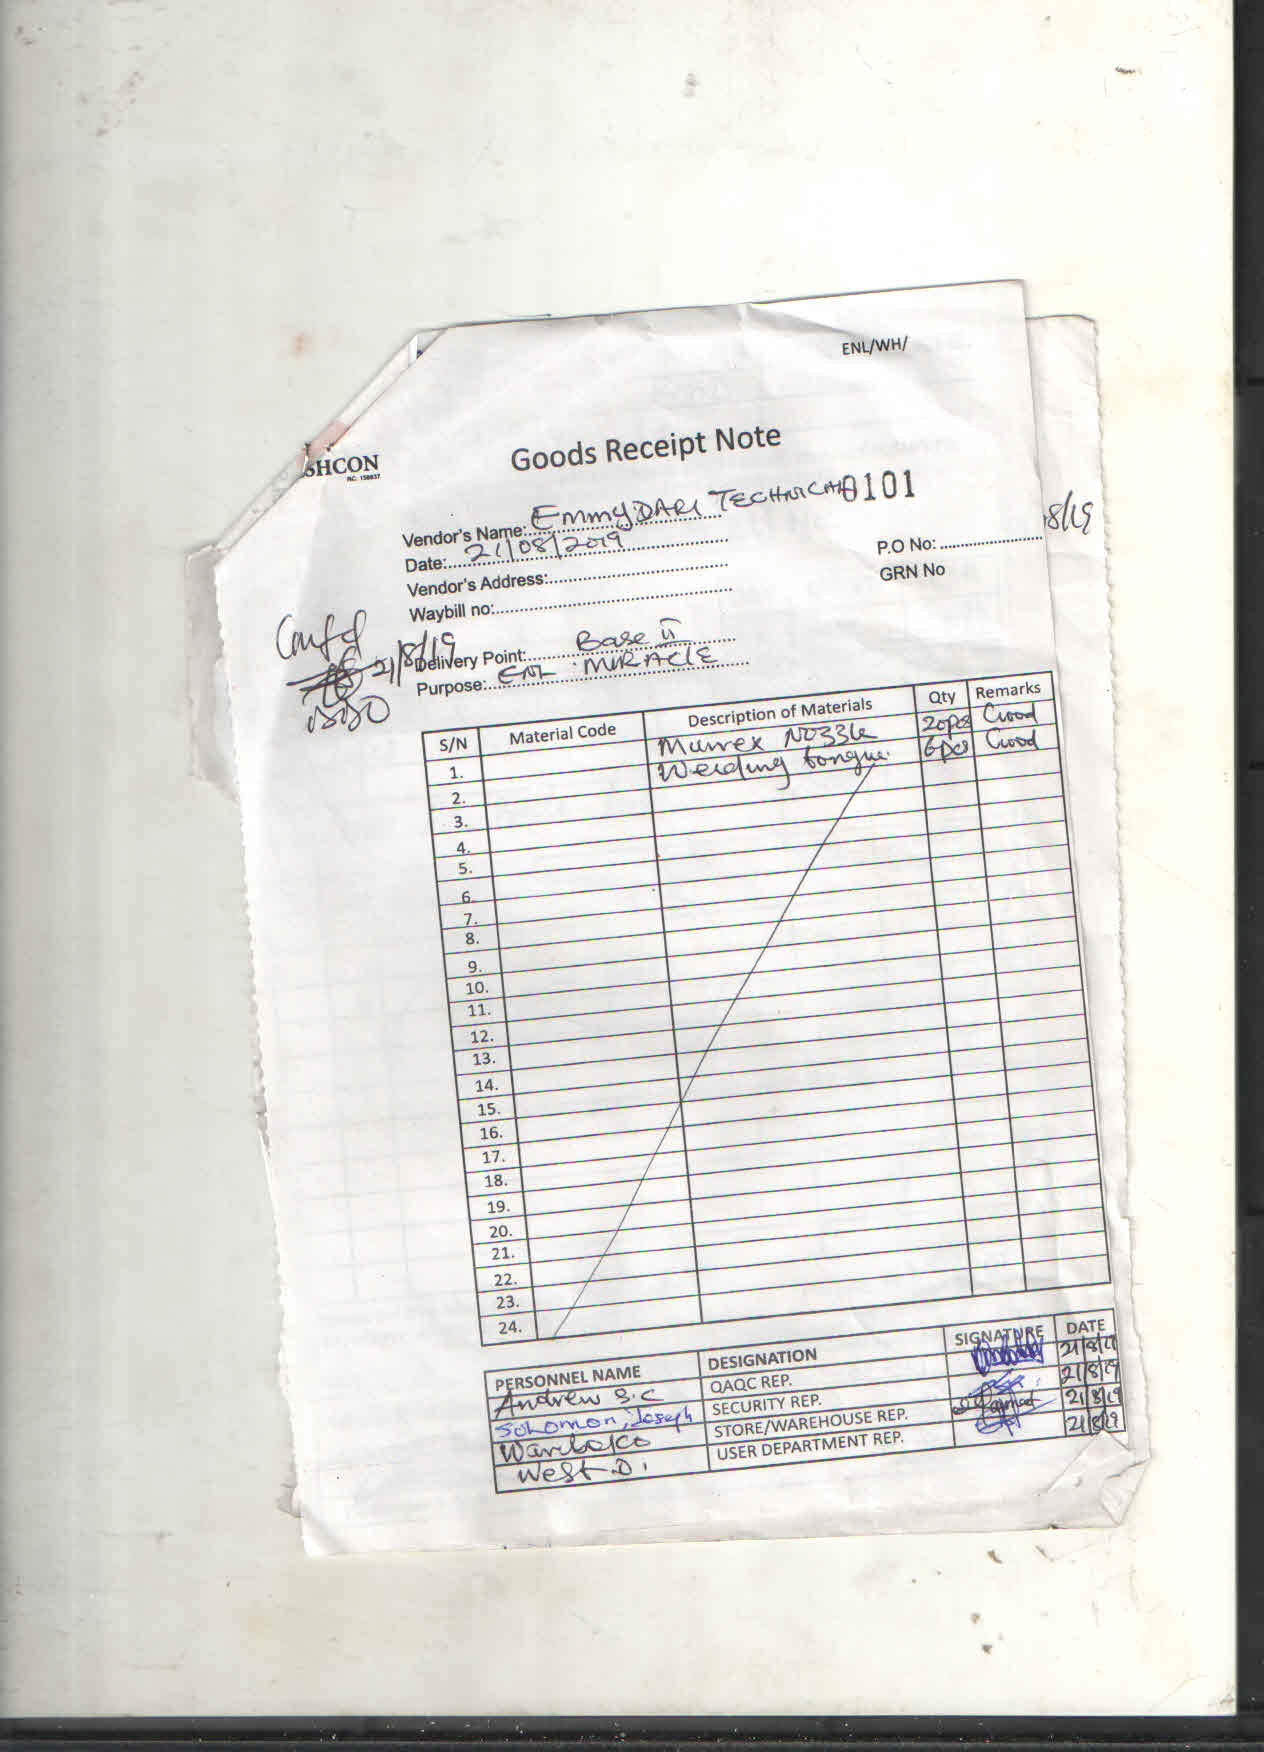 ENL/WH/
SHCON
RC: 158837
Goods Receipt Note
0101
Vendor's Name: EmmyDARI TECHNICAL
Date: 21/08/2019
8/19
P.O No:
Vendor's Address:
GRN No
Waybill no:
21/8/19
Delivery Point: Base II
Purpose: ENL MIRACLE
S/N Material Code Description of Materials Qty Remarks
1. Murrex Nozzle 20pcs Good
2. Welding tongue 6pcs Good
3.
4.
5.
6.
7.
8.
9.
10.
11.
12.
13.
14.
15.
16.
17.
18.
19.
20.
21.
22.
23.
24.
PERSONNEL NAME DESIGNATION SIGNATURE DATE
Andrew S.C QAQC REP. 21/8/19
Solomon, Joseph SECURITY REP. 21/8/19
Wariboko STORE/WAREHOUSE REP. 21/8/19
West .D. USER DEPARTMENT REP. 21/8/19